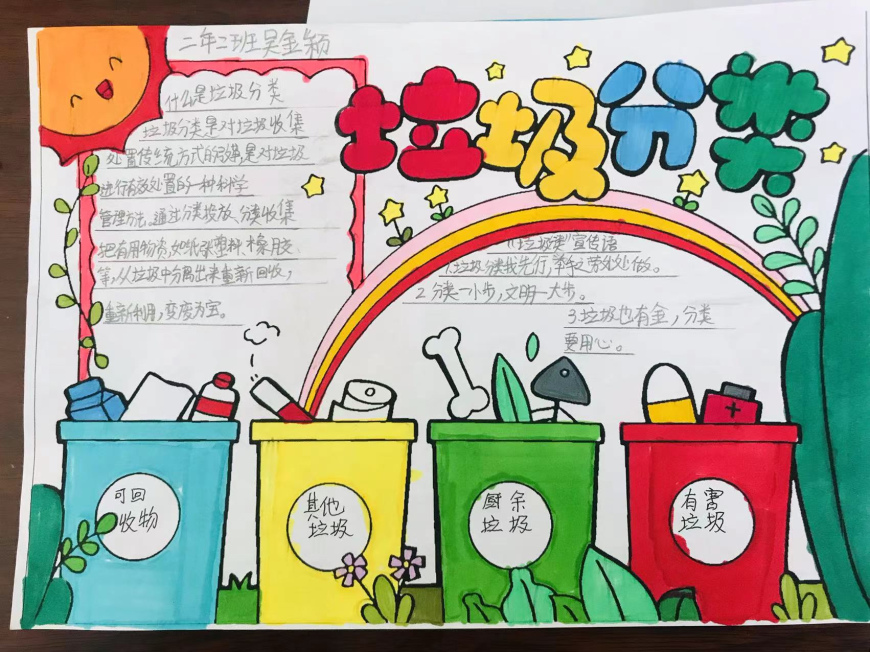 二年二班吴金颖
垃圾分类
什么是垃圾分类
垃圾分类是对垃圾收集
处置传统方式的改革,是对垃圾
进行有效处置的一种科学
管理方法。通过分类投放、分类收集
把有用物资,如纸张、塑料、橡胶
等,从垃圾中分离出来重新回收,
重新利用,变废为宝。
"垃圾类"宣传语
1.垃圾分类我先行,举手之劳处处做。
2.分类一小步,文明一大步。
3.垃圾也有金,分类
要用心。
可回
收物
其他
垃圾
厨余
垃圾
有害
垃圾